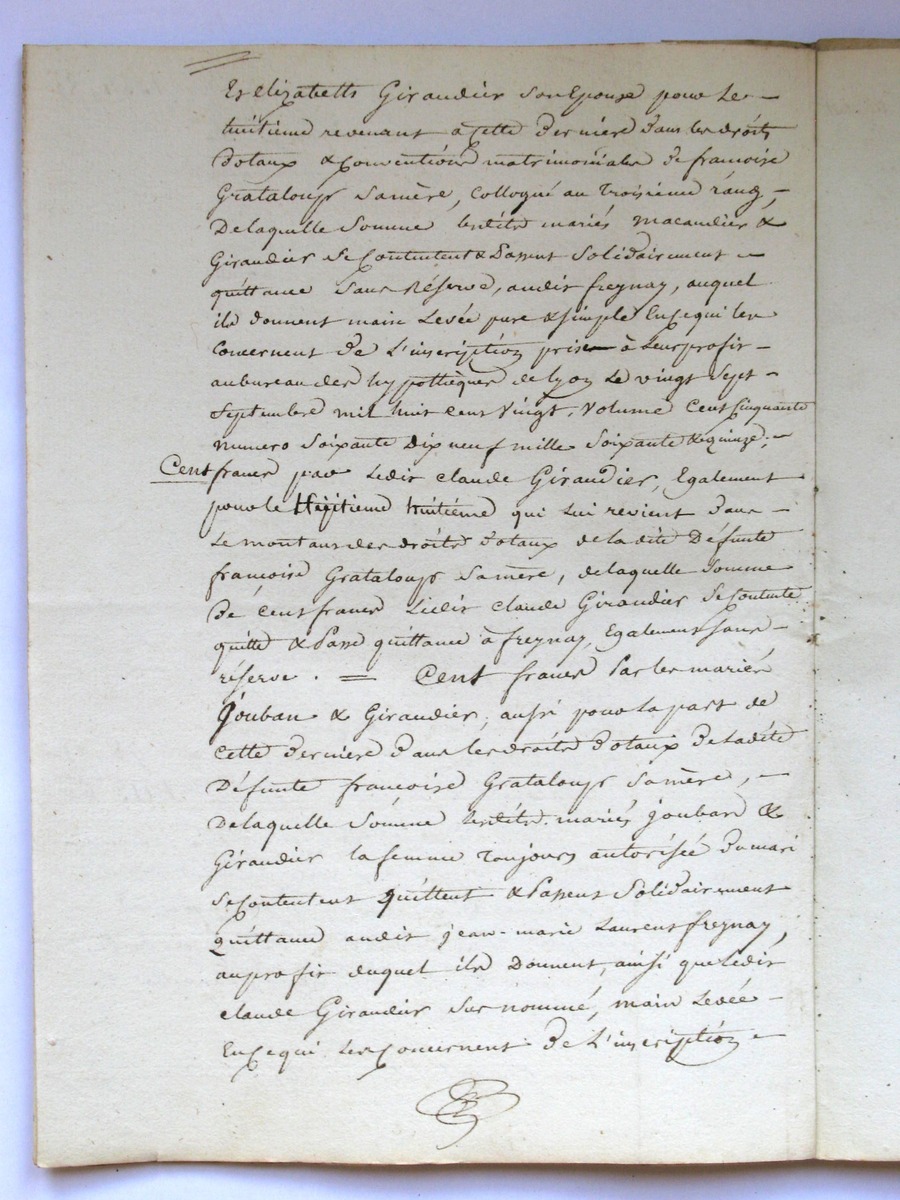 Et elizabeth Giraudier Son Epouze pour Le –
huitieme revenant a Cette Derniere Dans les droits
Dotaux & Conventions matrimoniales De francoise
Grataloup Sa mère, Colloqué au Troisieme rang, –
De laquelle Somme lesdits mariés macaudier &
Giraudier Se Contentent & Passent Solidairement –
quittance Sans Réserve, audit freynay, auquel
ils donnent main Levée pure & simple En Ce qui les
Concernent De L'inscription prise à Leur profit –
au bureau des hypothèques de lyon Le vingt Sept –
Septembre mil huit cent Vingt, Volume Cent Cinquante
numero Soixante Dix neuf mille Soixante & quinze; –
Cent francs par Ledit claude Giraudier, Egalement
pour le huitieme qui Lui revient Dans –
Le montant des droits Dotaux de la dite Défunte
françoise Grataloup Sa mère, de laquelle Somme
De Cent francs Ledit claude Giraudier Se Contente
quitte & Passe quittance à freynay, Egalement Sans –
réserve. = Cent francs Par les mariés
Jouban & Giraudier, aussi pour la part de
Cette Derniere Dans les droits Dotaux De Ladite
Défunte françoise Grataloup Sa mère, –
De laquelle Somme lesdits mariés Jouban &
Giraudier la femme Toujours autorisée Du mari
Se Contentent quittent & Passent Solidairement
Quittance audit jean-marie Laurent freynay,
au profit duquel ils Donnent, ainsi que Ledit
claude Giraudier Sus nommé, main Levée –
En Ce qui Les Concernent De L'inscription –